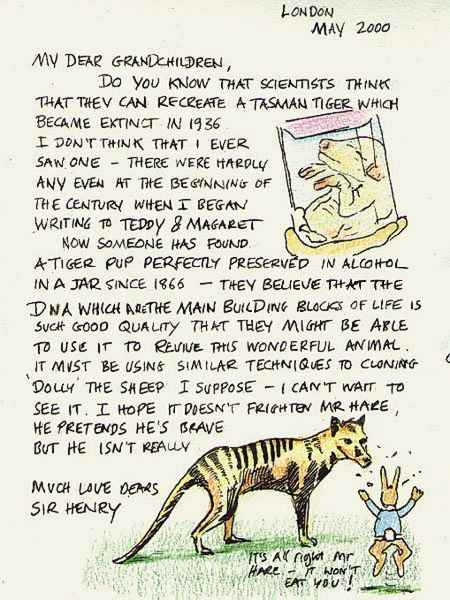 LONDON
MAY 2000
MY DEAR GRANDCHILDREN,
DO YOU KNOW THAT SCIENTISTS THINK
THAT THEY CAN RECREATE A TASMAN TIGER WHICH
BECAME EXTINCT IN 1936.
I DON'T THINK THAT I EVER
SAW ONE - THERE WERE HARDLY
ANY EVEN AT THE BEGINNING OF
THE CENTURY WHEN I BEGAN
WRITING TO TEDDY & MAGARET
NOW SOMEONE HAS FOUND
A TIGER PUP PERFECTLY PRESERVED IN ALCOHOL
IN A JAR SINCE 1866 - THEY BELIEVE THAT THE
DNA WHICH ARE THE MAIN BUILDING BLOCKS OF LIFE IS
SUCH GOOD QUALITY THAT THEY MIGHT BE ABLE
TO USE IT TO REVIVE THIS WONDERFUL ANIMAL.
IT MUST BE USING SIMILAR TECHNIQUES TO CLONING
'DOLLY' THE SHEEP I SUPPOSE - I CAN'T WAIT TO
SEE IT. I HOPE IT DOESN'T FRIGHTEN MR HARE,
HE PRETENDS HE'S BRAVE
BUT HE ISN'T REALLY
MUCH LOVE DEARS
SIR HENRY
IT'S All right Mr
HARE - IT WON'T
EAT YOU!